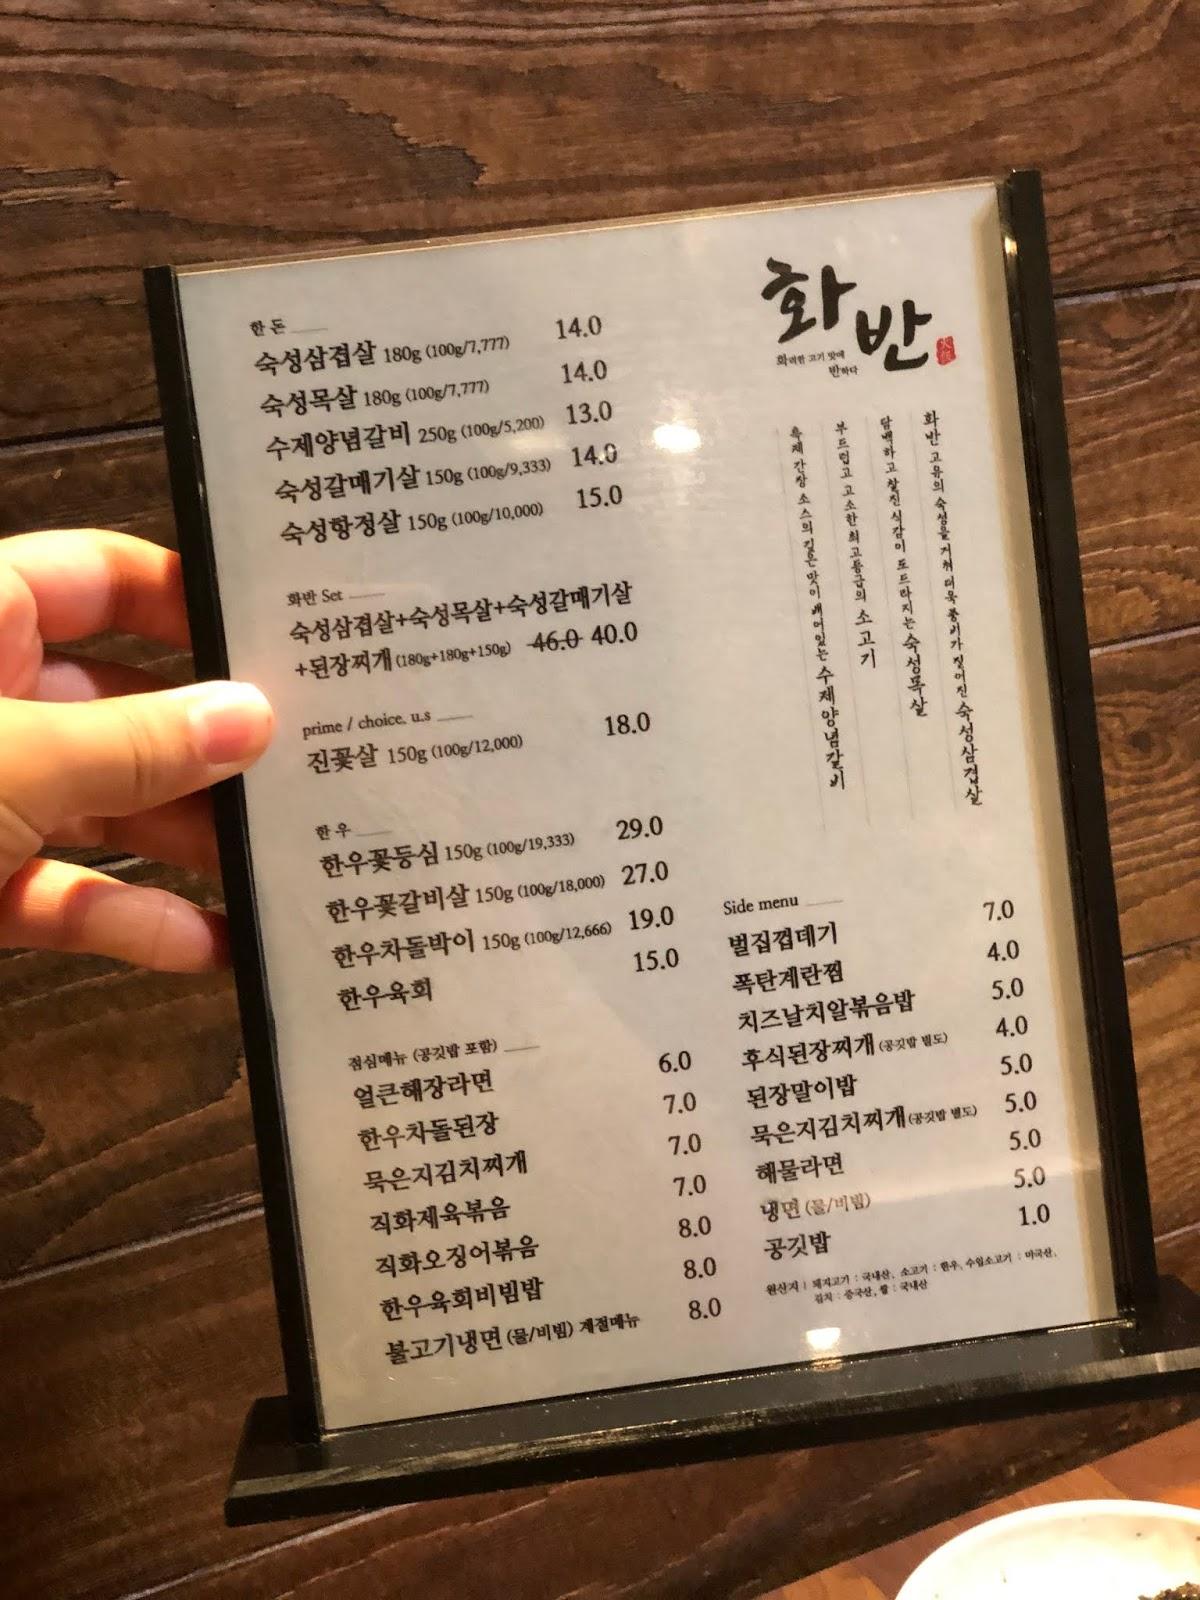 한돈
숙성삼겹살 180g (100g/7,777) 14.0
숙성목살 180g (100g/7,777) 14.0
수제양념갈비 250g (100g/5,200) 13.0
숙성갈매기살 150g (100g/9,333) 14.0
숙성항정살 150g (100g/10,000) 15.0
화반 Set
숙성삼겹살+숙성목살+숙성갈매기살
+된장찌개 (180g+180g+150g) 46.0 40.0
prime / choice. u.s
진꽃살 150g (100g/12,000) 18.0
한우
한우꽃등심 150g (100g/19,333) 29.0
한우꽃갈비살 150g (100g/18,000) 27.0
한우차돌박이 150g (100g/12,666) 19.0
한우육회 15.0
점심메뉴 (공깃밥 포함)
얼큰해장라면 6.0
한우차돌된장 7.0
묵은지김치찌개 7.0
직화제육볶음 7.0
직화오징어볶음 8.0
한우육회비빔밥 8.0
불고기냉면 (물/비빔) 계절메뉴 8.0
화반
화려한 고기 맛에
반하다
화반 고유의 숙성을 거쳐 더욱 풍미가 짙어진 숙성삼겹살
담백하고 찰진 식감이 도드라지는 숙성목살
부드럽고 고소한 최고등급의 소고기
흑제 간장 소스의 깊은 맛이 배어있는 수제양념갈비
Side menu
벌집껍데기 7.0
폭탄계란찜 4.0
치즈날치알볶음밥 5.0
후식된장찌개 (공깃밥 별도) 4.0
된장말이밥 5.0
묵은지김치찌개 (공깃밥 별도) 5.0
해물라면 5.0
냉면 (물/비빔) 5.0
공깃밥 1.0
원산지 | 돼지고기 : 국내산, 소고기 : 한우, 수입소고기 : 미국산,
김치 : 중국산, 쌀 : 국내산